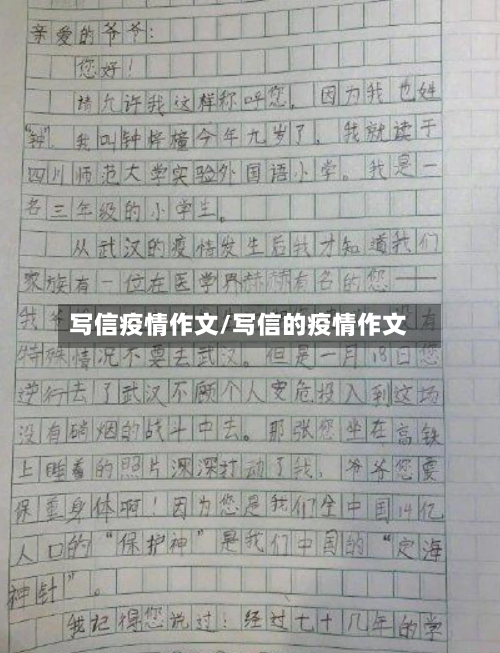 亲爱的爷爷：
您好！
请允许我这样称呼您，因为我也姓
“钟”，我叫钟梓橦今年九岁了，我就读于
四川师范大学实验外国语小学。我是一
名三年级的小学生。
从武汉的疫情发生后我才知道我们
家族有一位在医学界赫赫有名的您——
我爷
写信疫情作文/写信的疫情作文
有
特殊情况不要去武汉。但是一月18日您
逆行去了武汉不顾个人安危投入到这场
没有硝烟的战斗中去。那张您坐在高铁
上睡着的照片深深打动了我，爷爷您要
保重身体啊！因为您是我们全中国14亿
人口的“保护神”是我们中国的“定海
神针”。
我记得您说过：经过七十几年的学